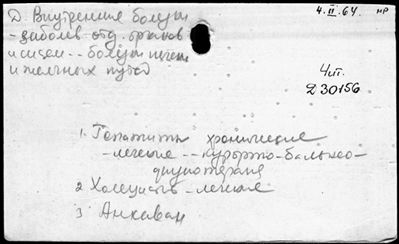 Д. Внутренние болезни
4.II.64. нр
- заболев. отд. органов
и систем -- болезни печени
и желчных путей
Чит.
Z 30156
1. Гепатиты хронические
- лечение -- курорто-бальнео-
физиотерапия
2. Холецистит - лечение
3. Анкаван